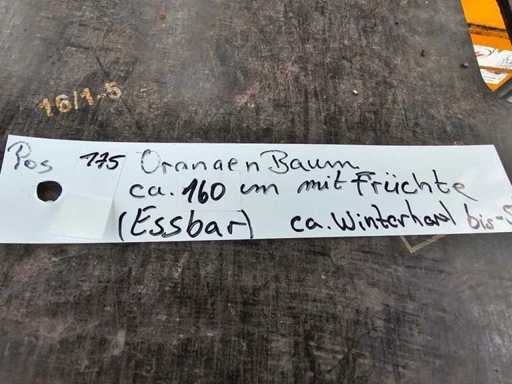 16/1.5
Pos 175 Orangen Baum
ca. 160 cm mit Früchte
(Essbar) ca. Winterhard bis -5